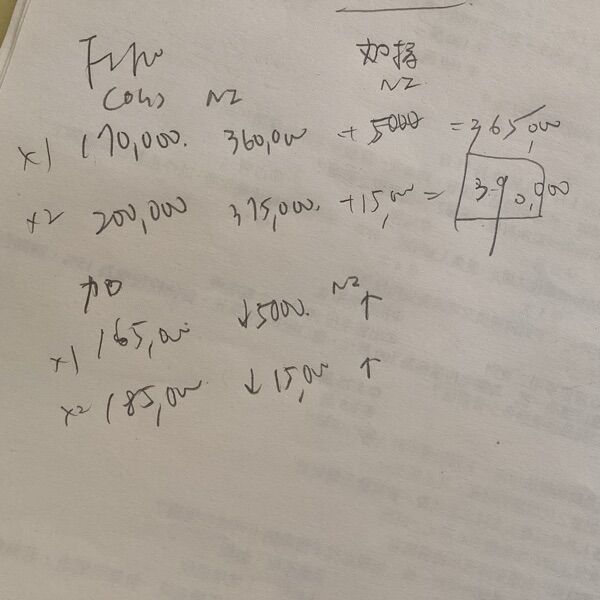 FIFO 加权
COGS NI NI
×1 170,000. 360,000 + 5000 = 365,000
×2 200,000 375,000. +15,000 = 390,000
加 NI
×1 165,000 ↓5000. ↑
×2 185,000. ↓15,000 ↑